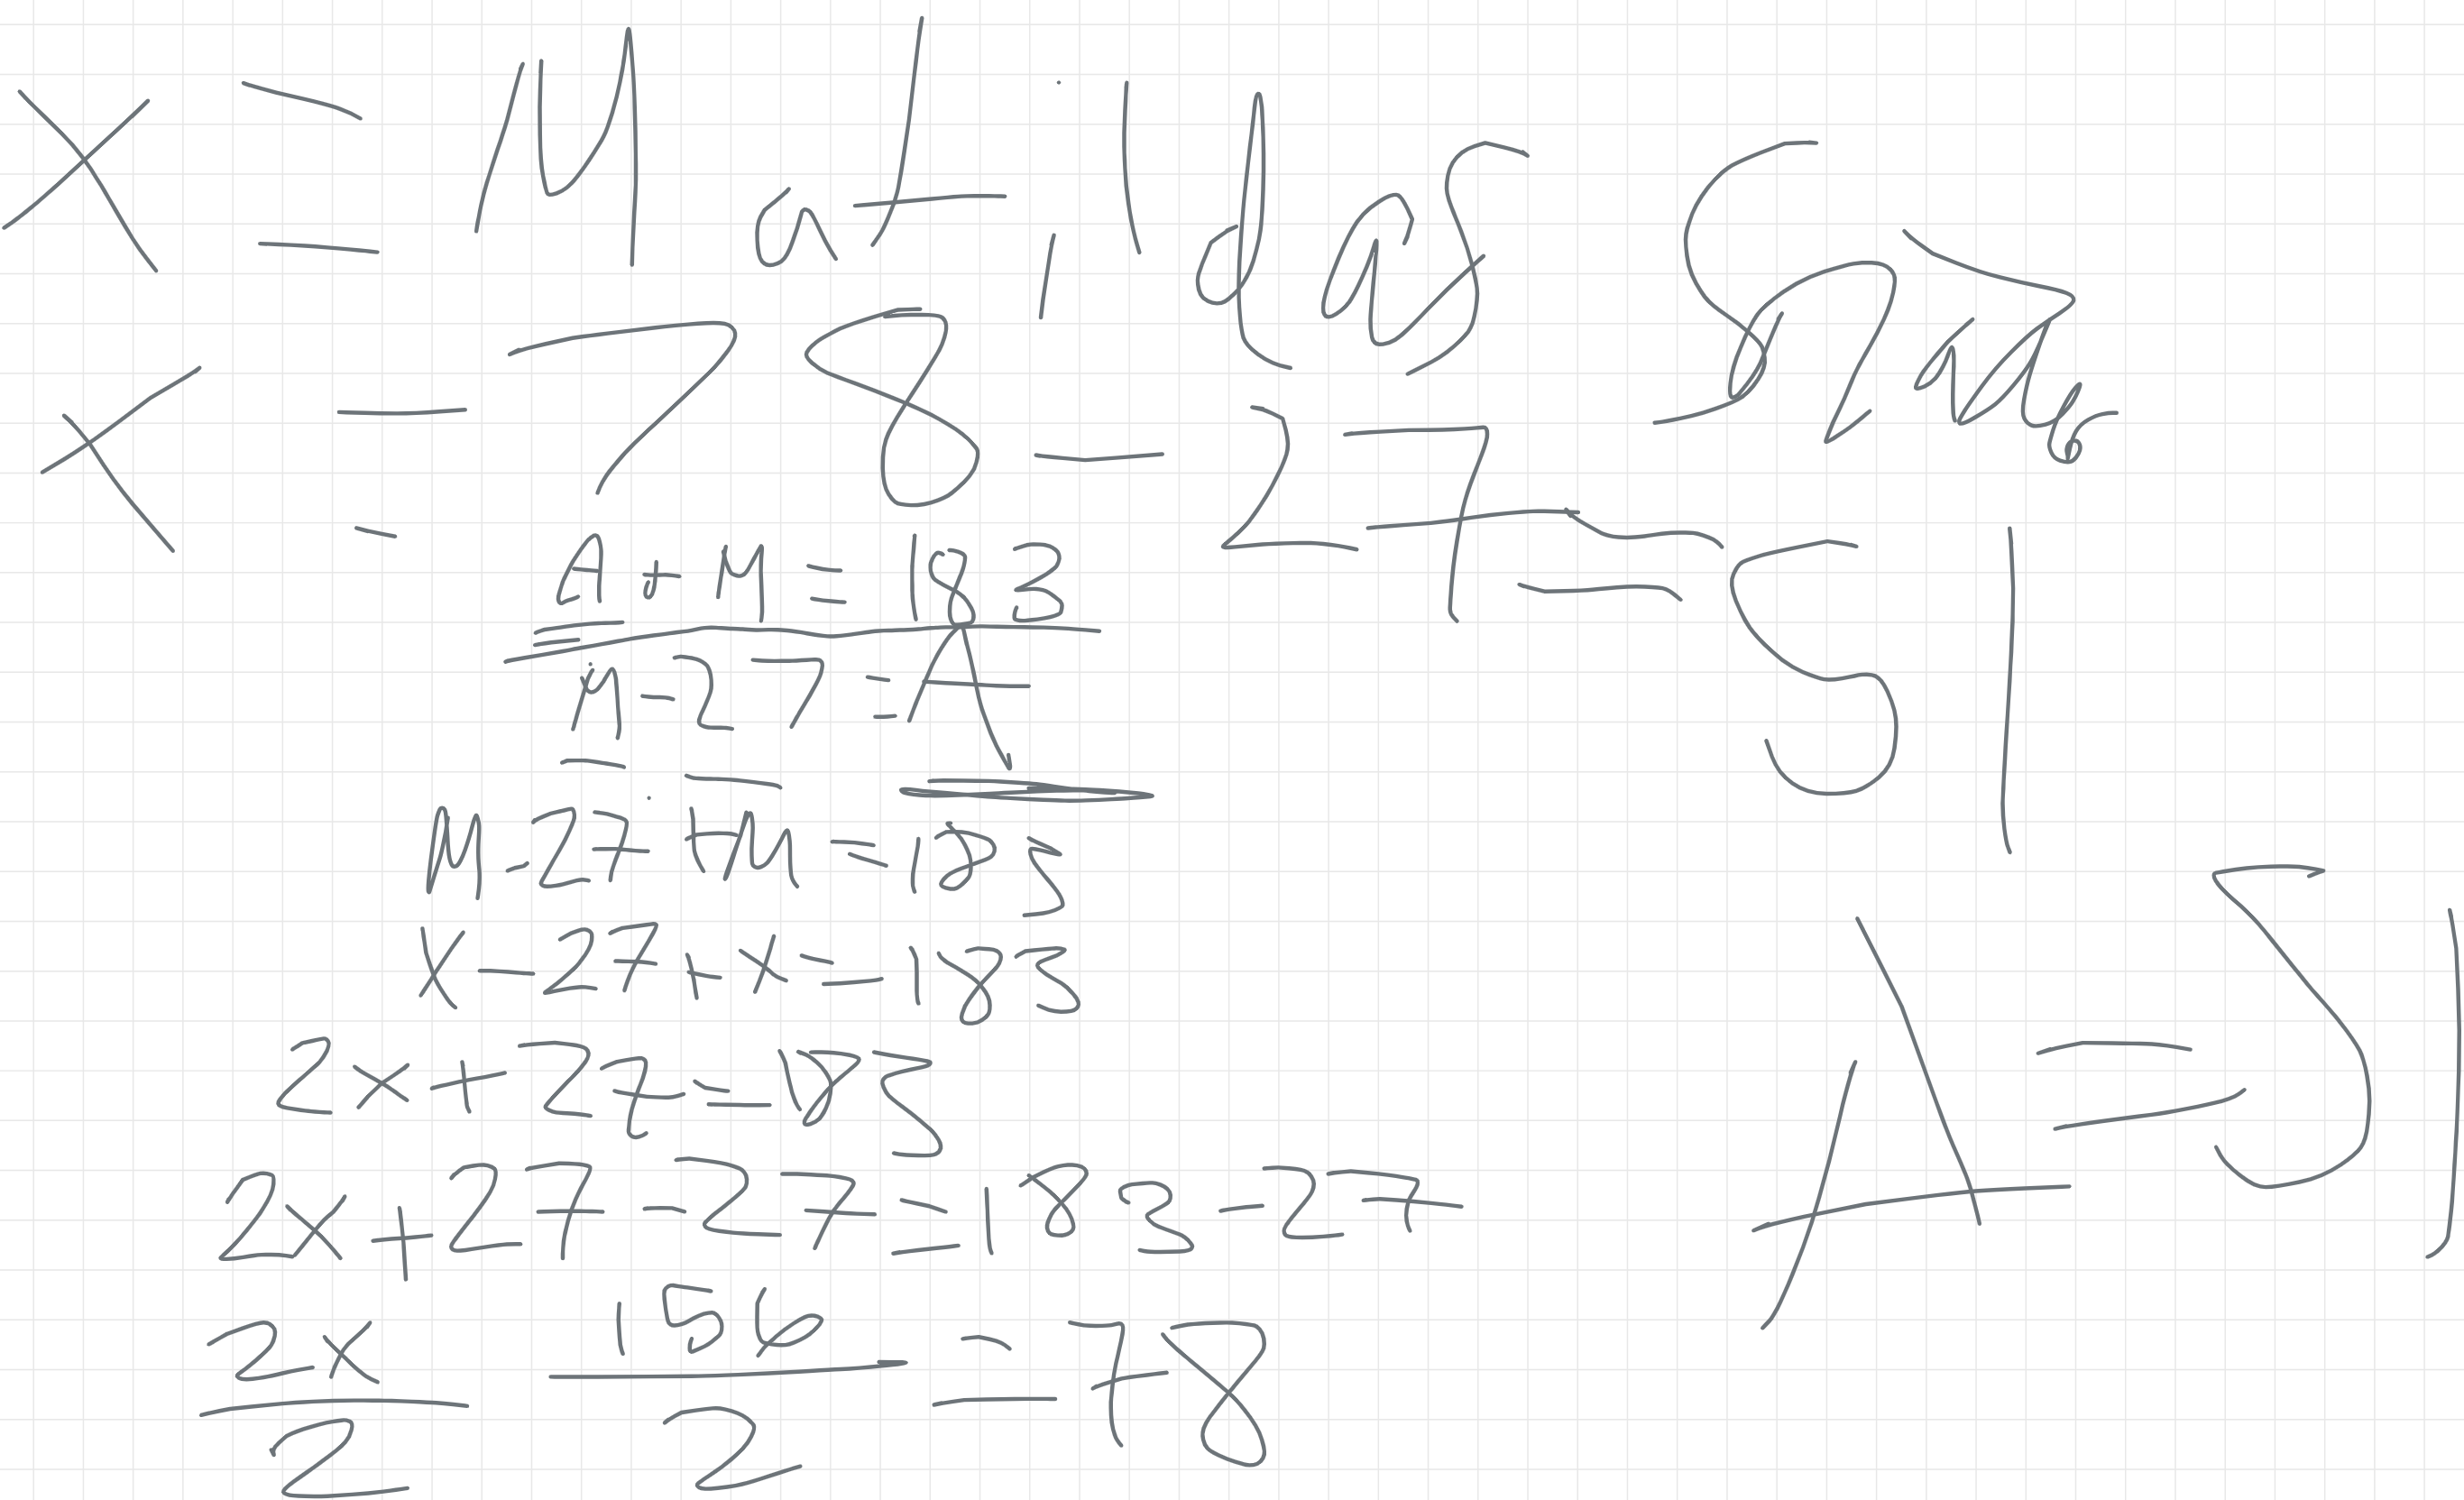 X = Matildas
X = 78 - 27 = 51
A + M = 183
M - 27 = A
M - 27 + M = 183
X - 27 + X = 183
2x + 27 = 183
2x + 27 - 27 = 183 - 27
2x 156 = 78
2 2
A = 51